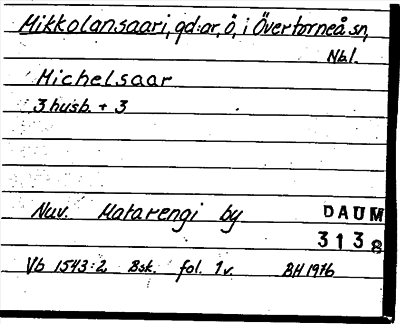 Mikkolansaari, gd:ar, ö, i Övertorneå sn,
Nbl.
Michelsaar
3 husb. + 3
Nuv. Matarengi by
DAUM
3138
Vb 1543:2 Bsk. fol. 1v. BH 1976